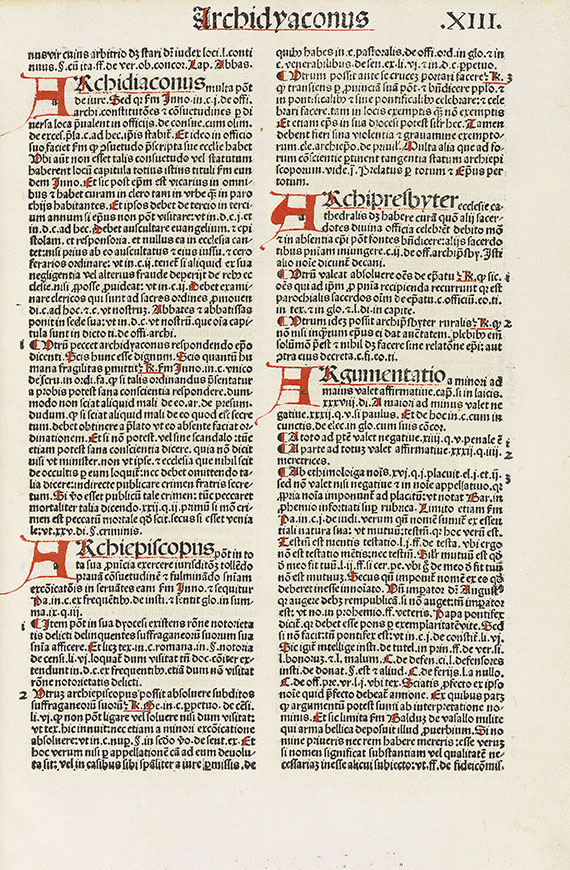 Archidyaconus .XIII.
nus vir cuius arbitrio dz stari dī iudex loci .l. conti
nuus. §. cū ita. ff. de ver. ob. concor. Lap. Abbas.
ARchidiaconus multa pōt
de iure. Sed qƷ fm Inno. in c. j. de offi.
archi. constitutōnes ⁊ cōsuetudines ꝑ di
uersa loca ꝑualent in officijs. de consue. cum olim.
de excef. ꝓla. c. ad hec. ipīs stabit. Et ideo in officio
suo faciet fm ꝙ ꝯsuetudo ꝓscripta sue ecclīe habet
Ubi aūt non esset talis consuetudo vel statutum
haberent locū capitula totius istius tituli fm eun
dem Inno. Et sic post epm̄ est vicarius in omni-
bus ⁊ habet curam in clero tam in vrbe qƷ in par-
chijs habitantes. Et ipsos debet de tercio in terci-
um annum si epus non pōt visitare: vt in. d. c. j. et
in. d. c. ad hec. Debet auscultare euangelium. ⁊ epi
stolam. et responsoria. et nullus ea in ecclesia can-
tet: nisi prius ab eo auscultatus ⁊ eius iussu. ⁊ cero
ferarios ordinare: vt in c. ij. tenet̄ si aliquid ex sua
negligentia vel alterius fraude deperijt de rebus ec
clesie. nisi ꝓbosse. ꝓuideat: vt in c. ij. Debet exami-
nare clericos qui sunt ad sacros ordines ꝓmouen
di. c. ad hoc. ⁊ c. vt nostrum. Abbates ⁊ abbatissas
ponit in sede sua: vt in. d. c. vt nostrū. que oīa capi-
tula sunt in dicto ti. de offi. archi.
1 ¶ Utrū peccet archidyaconus respondendo epō
dicenti. Scis hunc esse dignum. Scio quantū hu
mana fragilitas ꝑmittit. K. fm Inno. in c. vnico
de scru. in ordi. fa. ꝙ si talis ordinandus psentatur
a probis potest sana conscientia respondere. dum-
modo non sciat aliquid mali de eo: ar. de presum-
dudum. ꝙ si sciat aliquid mali de eo quod esset secre
tum. debet obtinere a plato vt eo absente faciat or-
dinationem. Et si nō potest. vel sine scandalo: tunc
etiam potest sana conscientia dicere. quia nō dicit
nisi vt minister. non vt ipse. ⁊ ecclesia que nihil scit
de occultis ꝑ eum loquit̄. nec debet omittendo ta-
lia dicere: indirecte publicare crimen fratris secre-
tum. Si vō esset publicū tale crimen: tūc peccaret
mortaliter talia dicendo. xxij. q. ij. primū. si mō cri-
men est peccatū mortale qd scit. secus si esset venia
le: vt. xxv. di. §. criminis.
ARchiepiscopus pōt in to
ta sua ꝓuincia exercere iurisditōs tollēdo
prauā cōsuetudinē ⁊ fulminādo sniam
excōicatōis in seruātes eam fm Inno. ⁊ sequitur
Pa. in. c. ex frequētib. de insti. ⁊ sentit glo. in sum-
ma. ix. q. iij.
1 ¶ Item pōt in sua dyocesi existens rōne notorieta
tis delicti delinquentes suffraganeorū suorum sua
snīa afficere. Et licz tex. in c. romana. in §. notoria
de censi. li. vj. loquat̄ dum visitat tn̄ doc. cōiter ex-
tendunt in. d. c. ex frequentib. etiā dum nō visitat
rōne notorietatis delicti.
2 ¶ Utrum archiepiscopus possit absoluere subditos
suffraganeorū suorū. K. Ge. in c. ꝑpetuo. de cēsi.
li. vi. ꝙ non pōnt ligare vel soluere nisi dum visitat̄
vt tex. hic innuit: nec etiam a minori excōicatione
absoluere: vt in c. nup. §. in scdo vō. de sent. ex. Et
hoc verum nisi ꝑ appellationē cā ad eum deuolu-
ta sit: vel in casibus sibi spāliter a iure ꝓmissis. de
quib habes in. c. pastoralis. de offi. ord. in glo. ⁊ in
c. venerabilibus. de sen. ex. li. vi. ⁊ in. d. c. ꝑpetuo.
¶ Utrum possit ante se crucez portari facere. K. 3
ꝙ transiens ꝑ ꝓuinciā suā pōt. ⁊ būdicere pplo. ⁊
in pontificalib ⁊ sine pontificalib celebrare: ⁊ cele
brari facere. tam in locis exemptis qƷ nō exemptis
Et etiam eps in sua diocesi potest silr hec. Tamen
debent fieri sina violentia ⁊ grauamine exempto-
rum. cle. archiepo. de priuil. Multa alia que ad fo-
rum cōscientie ꝑtinent tangentia statum archiepi
scoporum. vide. j. Prelatus ꝑ totum ⁊ Epūs per
totum.
ARchipresbyter ecclesie ca-
thedralis dz habere curā quō alij sacer-
dotes diuina officia celebrēt debito mō
⁊ in absentia epi pōt fontes bn̄dicere: alijs sacerdo
tibus pniam iniungere. c. ij. de off. archipsby. Isti
alio noie dicunt̄ decani.
¶ Utrū valeat absoluere oēs de epatu. K. ꝙ sic. 1
oēs qui ad ipm ꝓ pnīa recipienda recurrunt ꝙ est
parochialis sacerdos oīm de epatu. c. officiū. eo. ti.
in tex. ⁊ in glo. ⁊. l. di. in capite.
¶ Utrum idez possit archipsbyter ruralis. K. ꝙ 2
non nisi inqꝫtum epus ei dat auctatem. plebibus em̄
solūmō pest ⁊ nihil dz facere sine relatōne epi: aut
ꝯtra eius decreta. c. fi. eo. ti.
ARgumentatio a minori ad
maius valet affirmatiue. cap. si in laicis.
xxxviii. di. A maiori ad minus valet ne
gatiue. xxxij. q. v. si paulus. Et de hoc in c. cum in
cunctis. de elec. in glo. cum suis cōcor.
¶ A toto ad ptē valet negatiue. xiij. q. v. penale ē 1
¶ A parte ad totuz valet affirmatiue. xxxij. q. iiij. 2
meretrices.
¶ Ab ethimoloigia nois. xvj. q. j. placuit. el. j. et. ij. 3
sed nō valet nisi negatiue ⁊ in noie appellatiuo. qꝛ
ꝓpria noia imponunt̄ ad placitū: vt notat Bar. in
prohemio infortiati sup rubrica. Limito etiam fm
Pa. in. c. j. de iudi. verum qn̄ nomē sumit̄ ex essen
tiali natura sua: vt mutuuz: testm̄. qꝛ hoc verū est.
Testm̄ est mentis testatio .l. j. ff. de testa. vbi ergo
nō est testatio mētis: nec testm̄. Silr mutuū est qd
ō meo fit tuū .l. ij. ff. si cer. pe. vbi g̊ de meo nō fit tuū
nō est mutuuz. Secus qn̄ imponit̄ nomē ex eo qd
deberet inesse innoiato. Un̄ imperator dz August
qꝛ augere debz rempublicā. si nō auget: tn̄ imperator
est: vt no. in prohemio. ff. veteris. Papa pontifex
dicit̄. qꝛ debet esse pons ꝑ exemplaritatē vite. Sed
si nō facit: tn̄ pontifex est: vt in c. j. de constit. li. vj.
Sic igit̄ intellige insti. de tutel. in prin. ff. de ver. si.
l. bonorum. ⁊. l. malum. C. de defen. ci. l. defensores
insti. de donat. §. est ⁊ aliud. C. de ferijs. l. a nullo.
C. de off. por. vr. l. j. vbi tex. Sciatis. ꝑfecto ex ipso
noie quid pfecto debeat annione. Ex quibus patz
ꝙ argumentū potest sumi ab interpretatione no-
minis. Et sic limita fm Baldum de vasallo milite
qui arma bellica deposuit illud prouerbium. Si no
mine priueris nec rem habere mereris: esse verum
si nomen significat substantiam vel qualitatē ne-
cessariaz inesse alicui subiecto: vt. ff. de fideicomis.